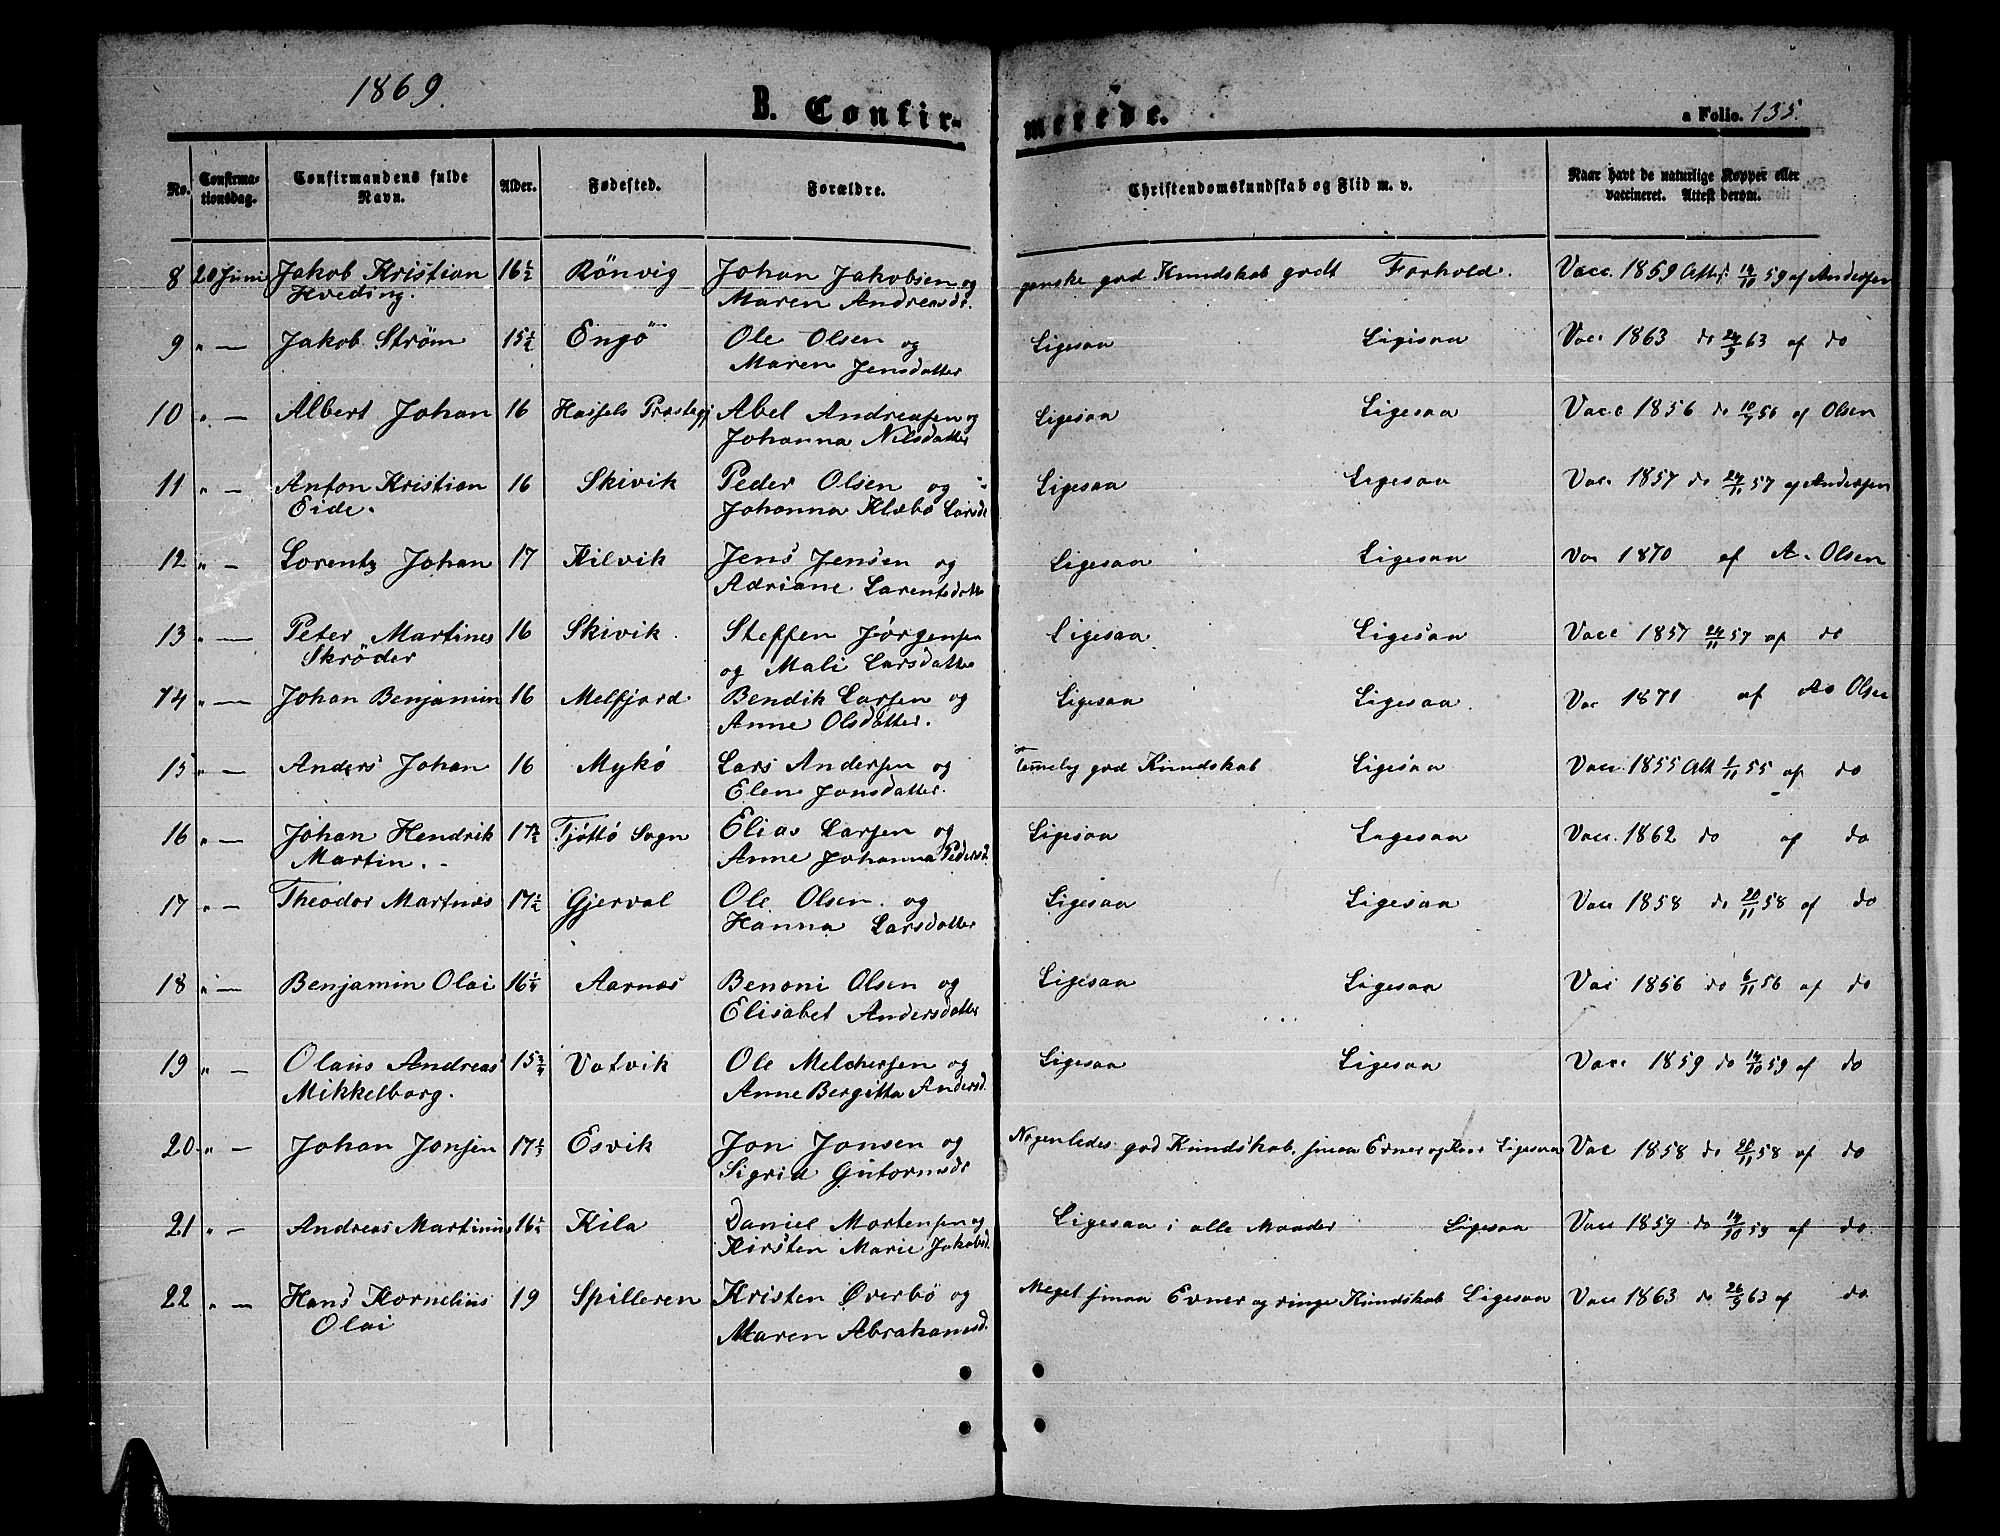 1869.
B. Confirmerede.
a Folio. 135.
No. Confirmationsdag. Confirmandens fulde Navn. Alder. Fødested. Forældre. Christendomskundskab og Flid m. v. Naar havt de naturlige Kopper eller vaccineret. Attest derom.
8 20 Juni Jakob Kristian 16 1/2 Rönvig Johan Jakobsen og ganske god Kundskab godt Forhold. Vacc. 1859 Att. 14/10 59 af Andersen
Hveding. Maren Andreasdr.
9 " — Jakob Strøm 15 1/2 Engö Ole Olsen og Ligesaa Ligesaa Vac. 1863 do 24/9 63 af do
Maren Jensdatter
10 " — Albert Johan 16 Hassels Præstegj Abel Andreasen og Ligesaa Ligesaa Vacc 1856 do 10/9 56 af Olsen
Johanna Nilsdatter
11 " — Anton Kristian 16 Skivik Peder Olsen og Ligesaa Ligesaa Vac. 1857 do 24/11 57 af Andersen
Eide. Johanna Klæbo Larsd
12 " — Lorentz Johan 17 Kilvik Jens Jensen og Ligesaa Ligesaa Vac 1870 af A. Olsen
Adriane Larentsdatte
13 " — Peter Martines 16 Skivik. Steffen Jørgensen Ligesaa Ligesaa Vacc 1857 24/11 57 af do
Skrøder og Mali Larsdatte
14 " — Johan Benjamin 16 Melfjord Bendik Larsen og Ligesaa Ligesaa Vac 1871 af A. Olsen
Anne Olsdatter.
15 " — Anders Johan 16 Mykó Lars Andersen og Temelig god Kundskab Ligesaa Vacc. 1855 Att 1/11 55 af do
Elen Jonsdatter.
16 " — Johan Hendrik 17 Tjøttø Sogn Elias Larsen og Ligesaa Ligesaa Vacc. 1862 do af do
Martin. Anne Johanna Pedersd.
17 " — Theodor Martnæs 17 1/2 Gjerval Ole Olsen og Ligesaa Ligesaa Vacc 1858 do 20/11 58 af do
Hanna Larsdatter
18 " — Benjamin Olai 16 1/4 Aarnæs Benoni Olsen og Ligesaa Ligesaa Vac 1856 do 6/11 56 af do
Elisabet Andersdatter
19 " — Olaus Andreas 15 3/4 Vatvik Ole Melchersen og Ligesaa Ligesaa Vacc 1859 do 14/10 59 af do
Mikkelborg. Anne Bergitta Andersd.
20 " — Johan Jonsen 17 1/2 Esvik Jon Jonsen og Nogenledes god Kundskab, smaa Evner og Ligesaa Vac 1858 do 28/11 58 af do
Sigrid Gutormsdr
21 " — Andreas Martinus 16 1/2 Kila Daniel Mortensen og Ligesaa i alle Maader Ligesaa Vacc 1859 do 14/10 59 af do
Kirsten Marie Jakobsd.
22 " — Hans Kornelius 19 Spilleren Kristen Øverbö og Meget smaa Evner og ringe Kundskab Ligesaa Vacc 1863 do 26/9 63 af do
Olai Maren Abrahamsd.